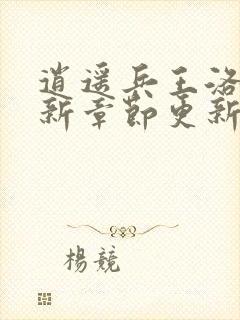 逍遥兵王洛
新章節更新
楊競